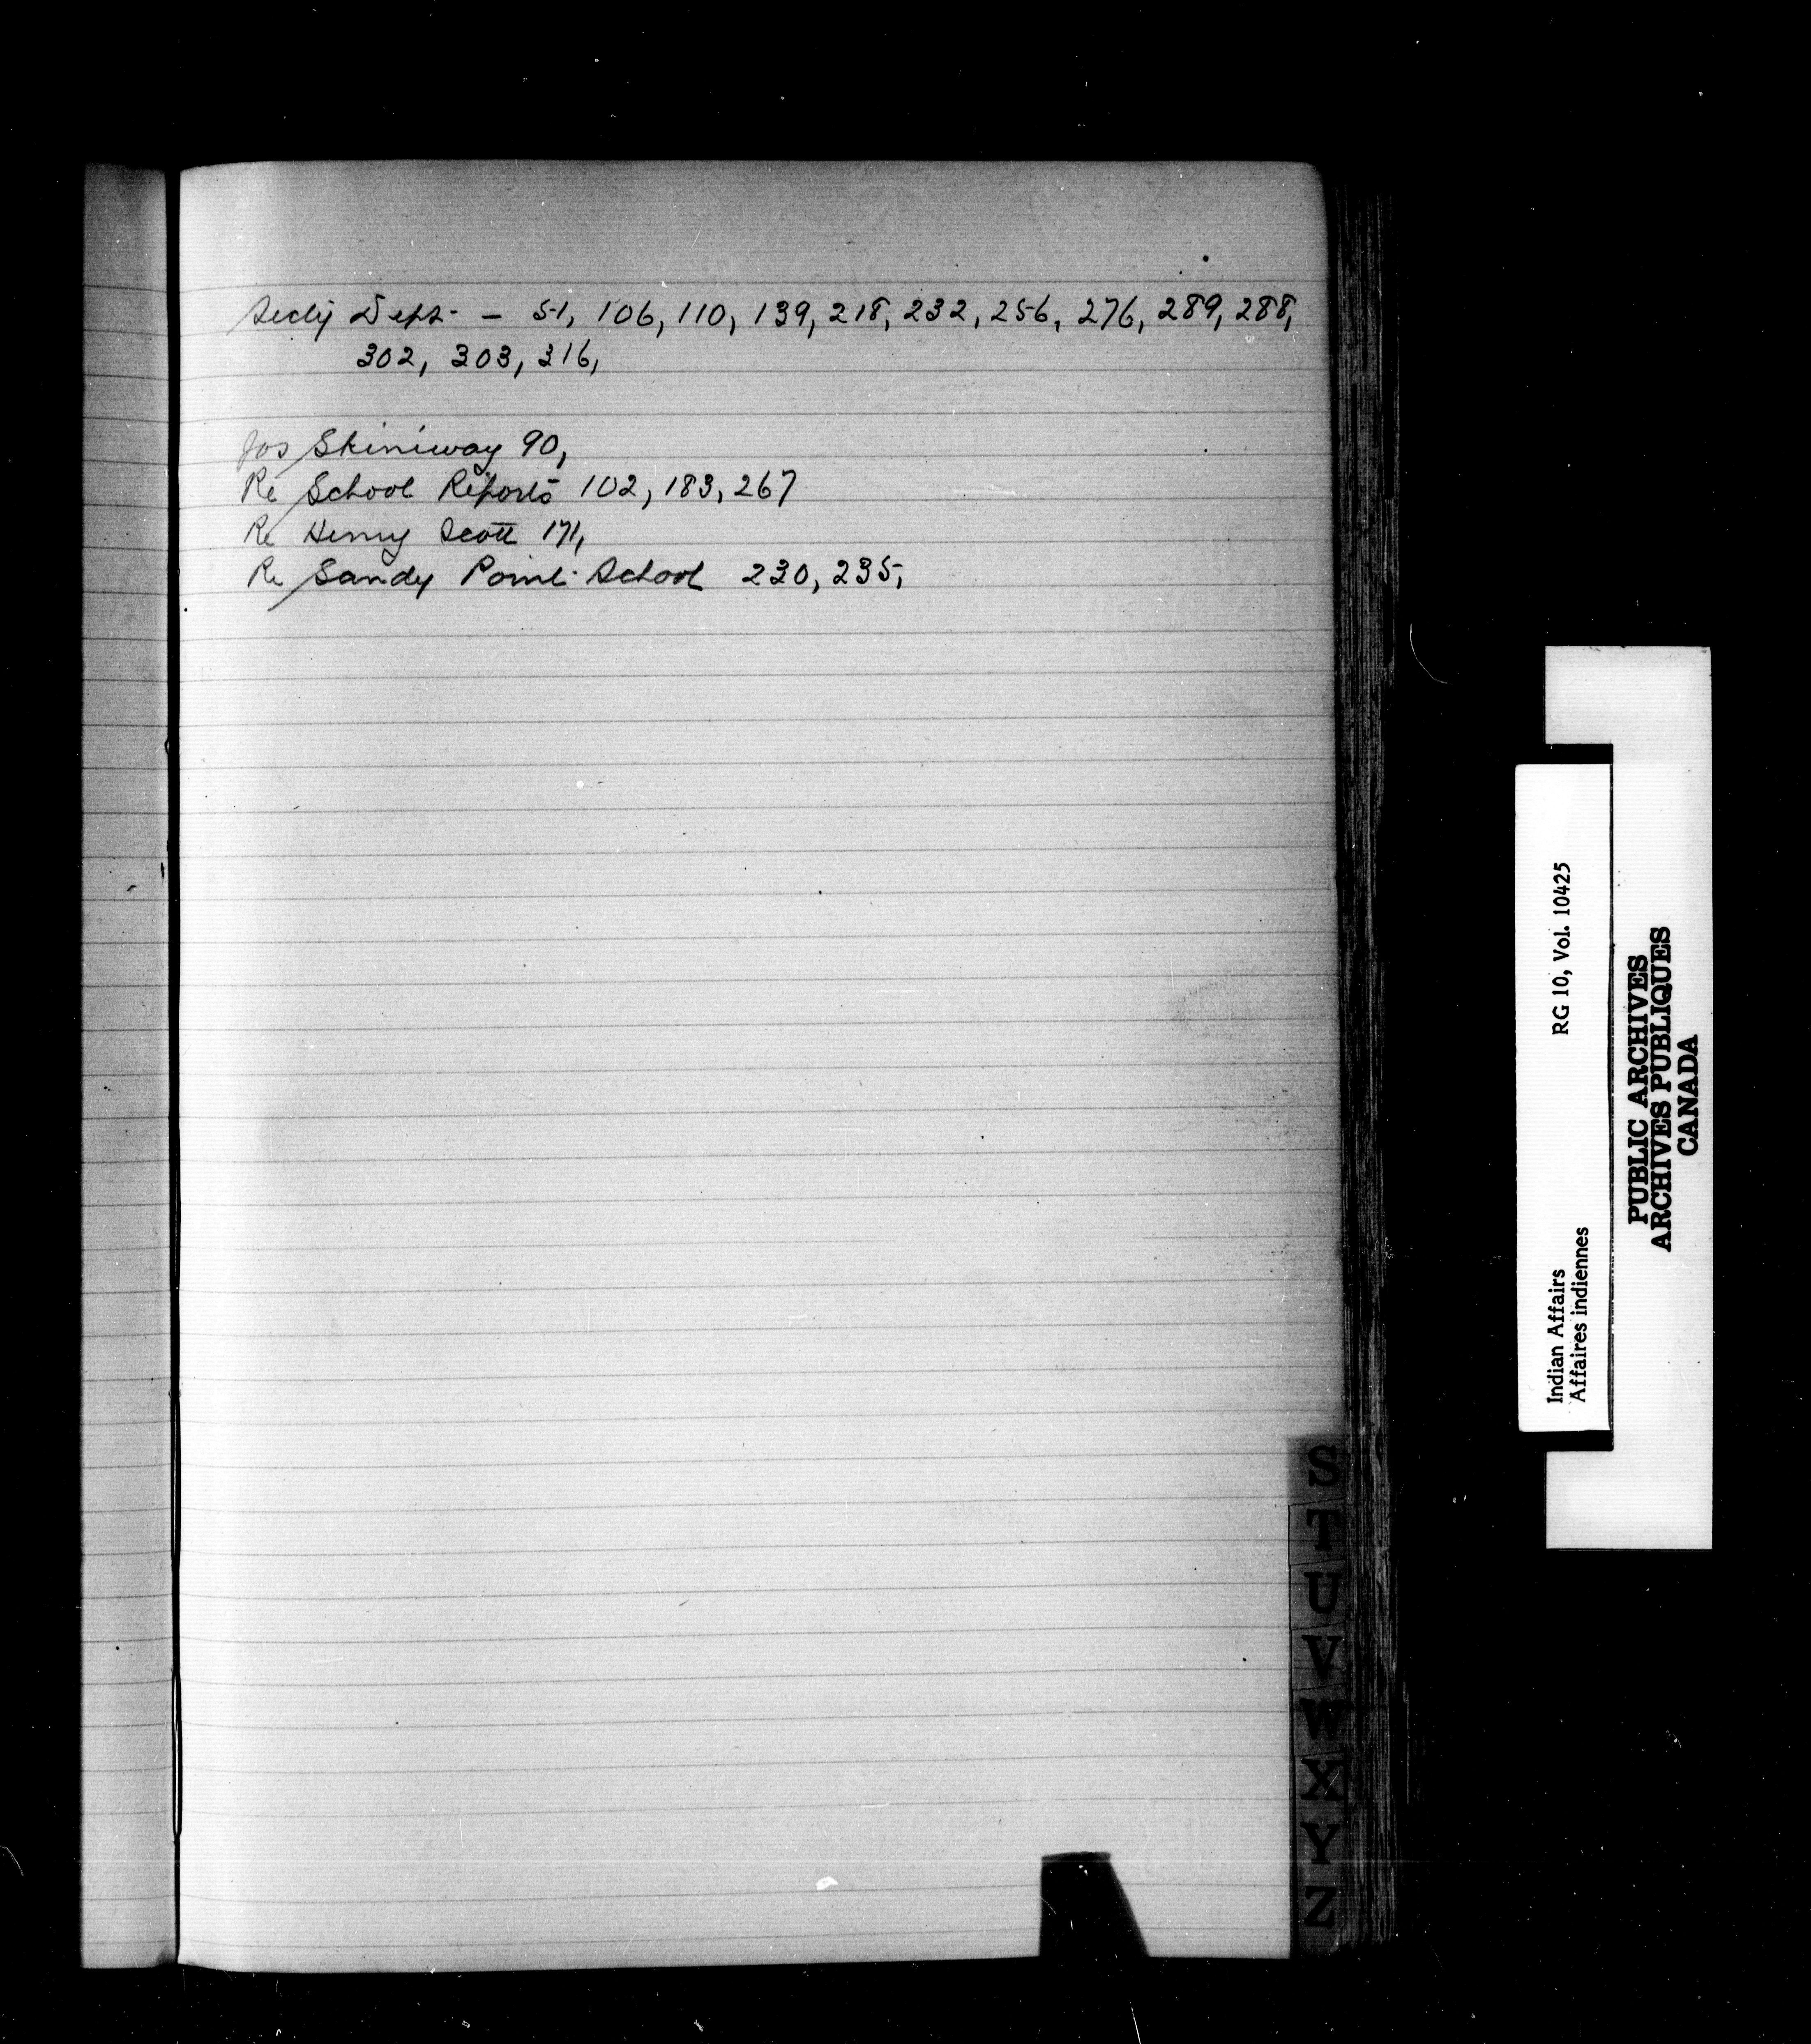 Secty Dept. – 51, 106, 110, 139, 218, 232, 256, 276, 289, 288,
302, 303, 316,
Jos Skiniway 90,
Re School Reports 102, 183, 267
Re Henry Scott 171,
Re Sandy Point School 230, 235,
S
T
U
V
W
X
Y
Z
Indian Affairs RG 10, Vol. 10425
Affaires indiennes
PUBLIC ARCHIVES
ARCHIVES PUBLIQUES
CANADA